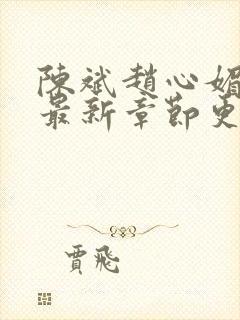 陳斌趙心媚
最新章節更
賈飛